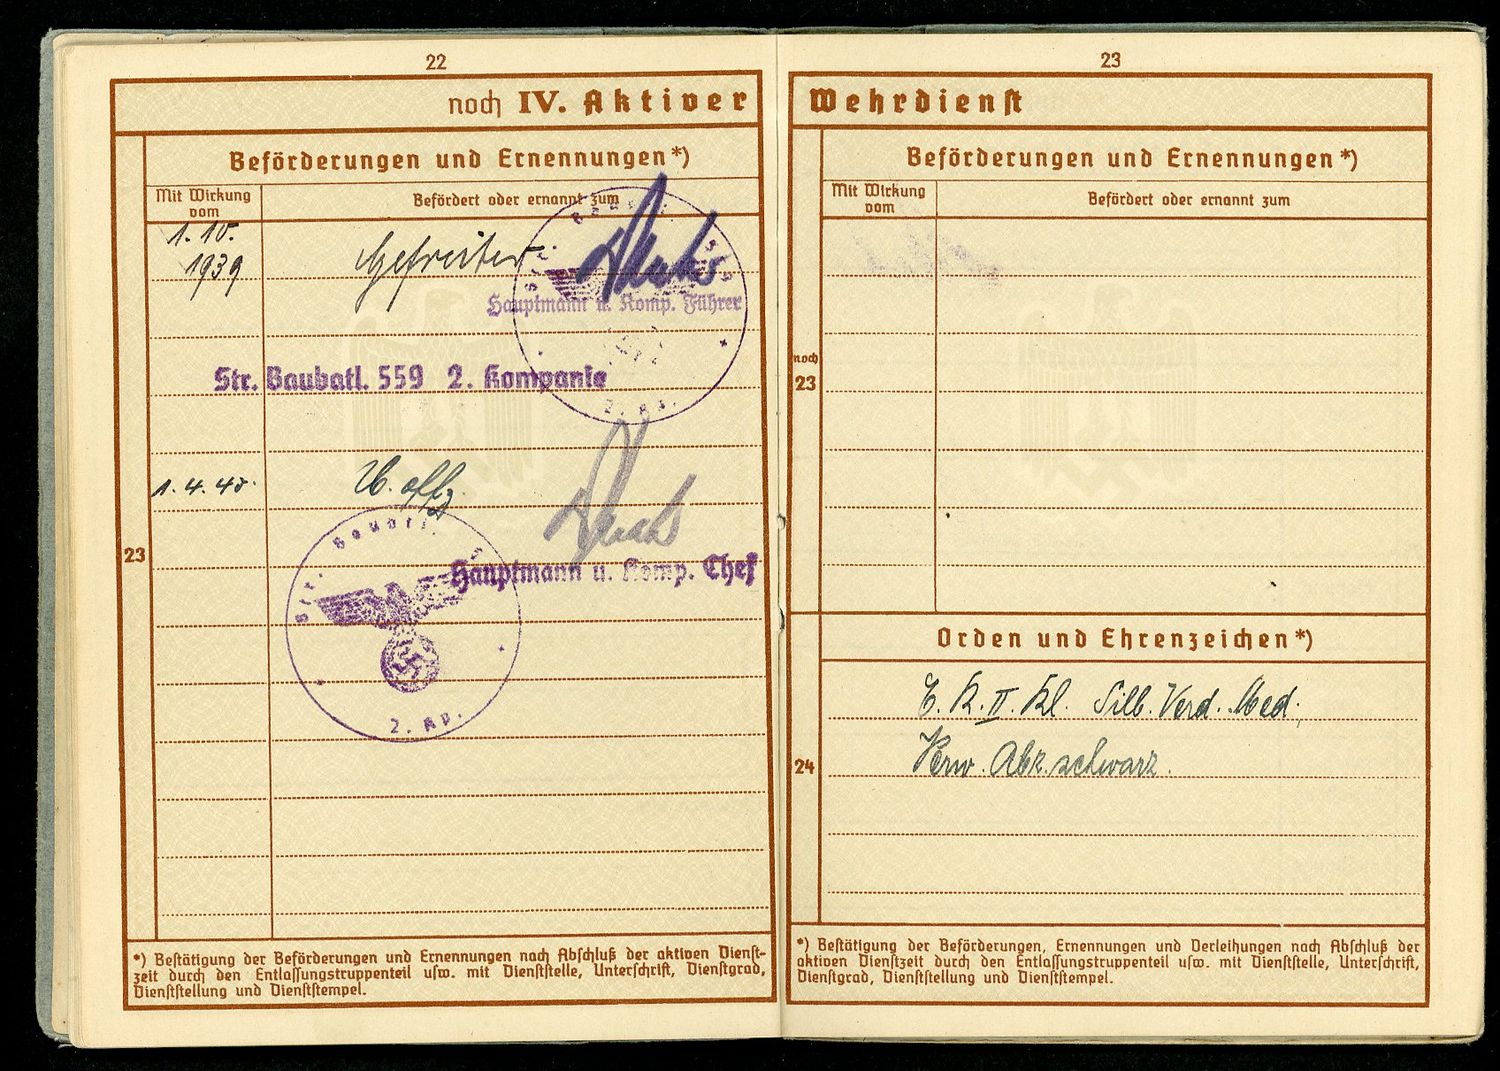 22
noch IV. Aktiver
Beförderungen und Ernennungen*)
Mit Wirkung vom
Befördert oder ernannt zum
1.10.
1939
Gefreiter
Hauptmann u. Komp. Führer
Str. Baubatl. 559 2. Kompanie
2. Kp.
1.4.40.
U.offz.
Str. Baubtl.
Hauptmann u. Komp. Chef
23
2. Kp.
*) Bestätigung der Beförderungen und Ernennungen nach Abschluß der aktiven Dienst-
zeit durch den Entlassungstruppenteil usw. mit Dienststelle, Unterschrift, Dienstgrad,
Dienststellung und Dienststempel.
23
Wehrdienst
Beförderungen und Ernennungen*)
Mit Wirkung vom
Befördert oder ernannt zum
noch
23
Orden und Ehrenzeichen*)
E. K. II. Kl. Silb. Verd. Med.
Verw. Abz. schwarz.
24
*) Bestätigung der Beförderungen, Ernennungen und Verleihungen nach Abschluß der
aktiven Dienstzeit durch den Entlassungstruppenteil usw. mit Dienststelle, Unterschrift,
Dienstgrad, Dienststellung und Dienststempel.